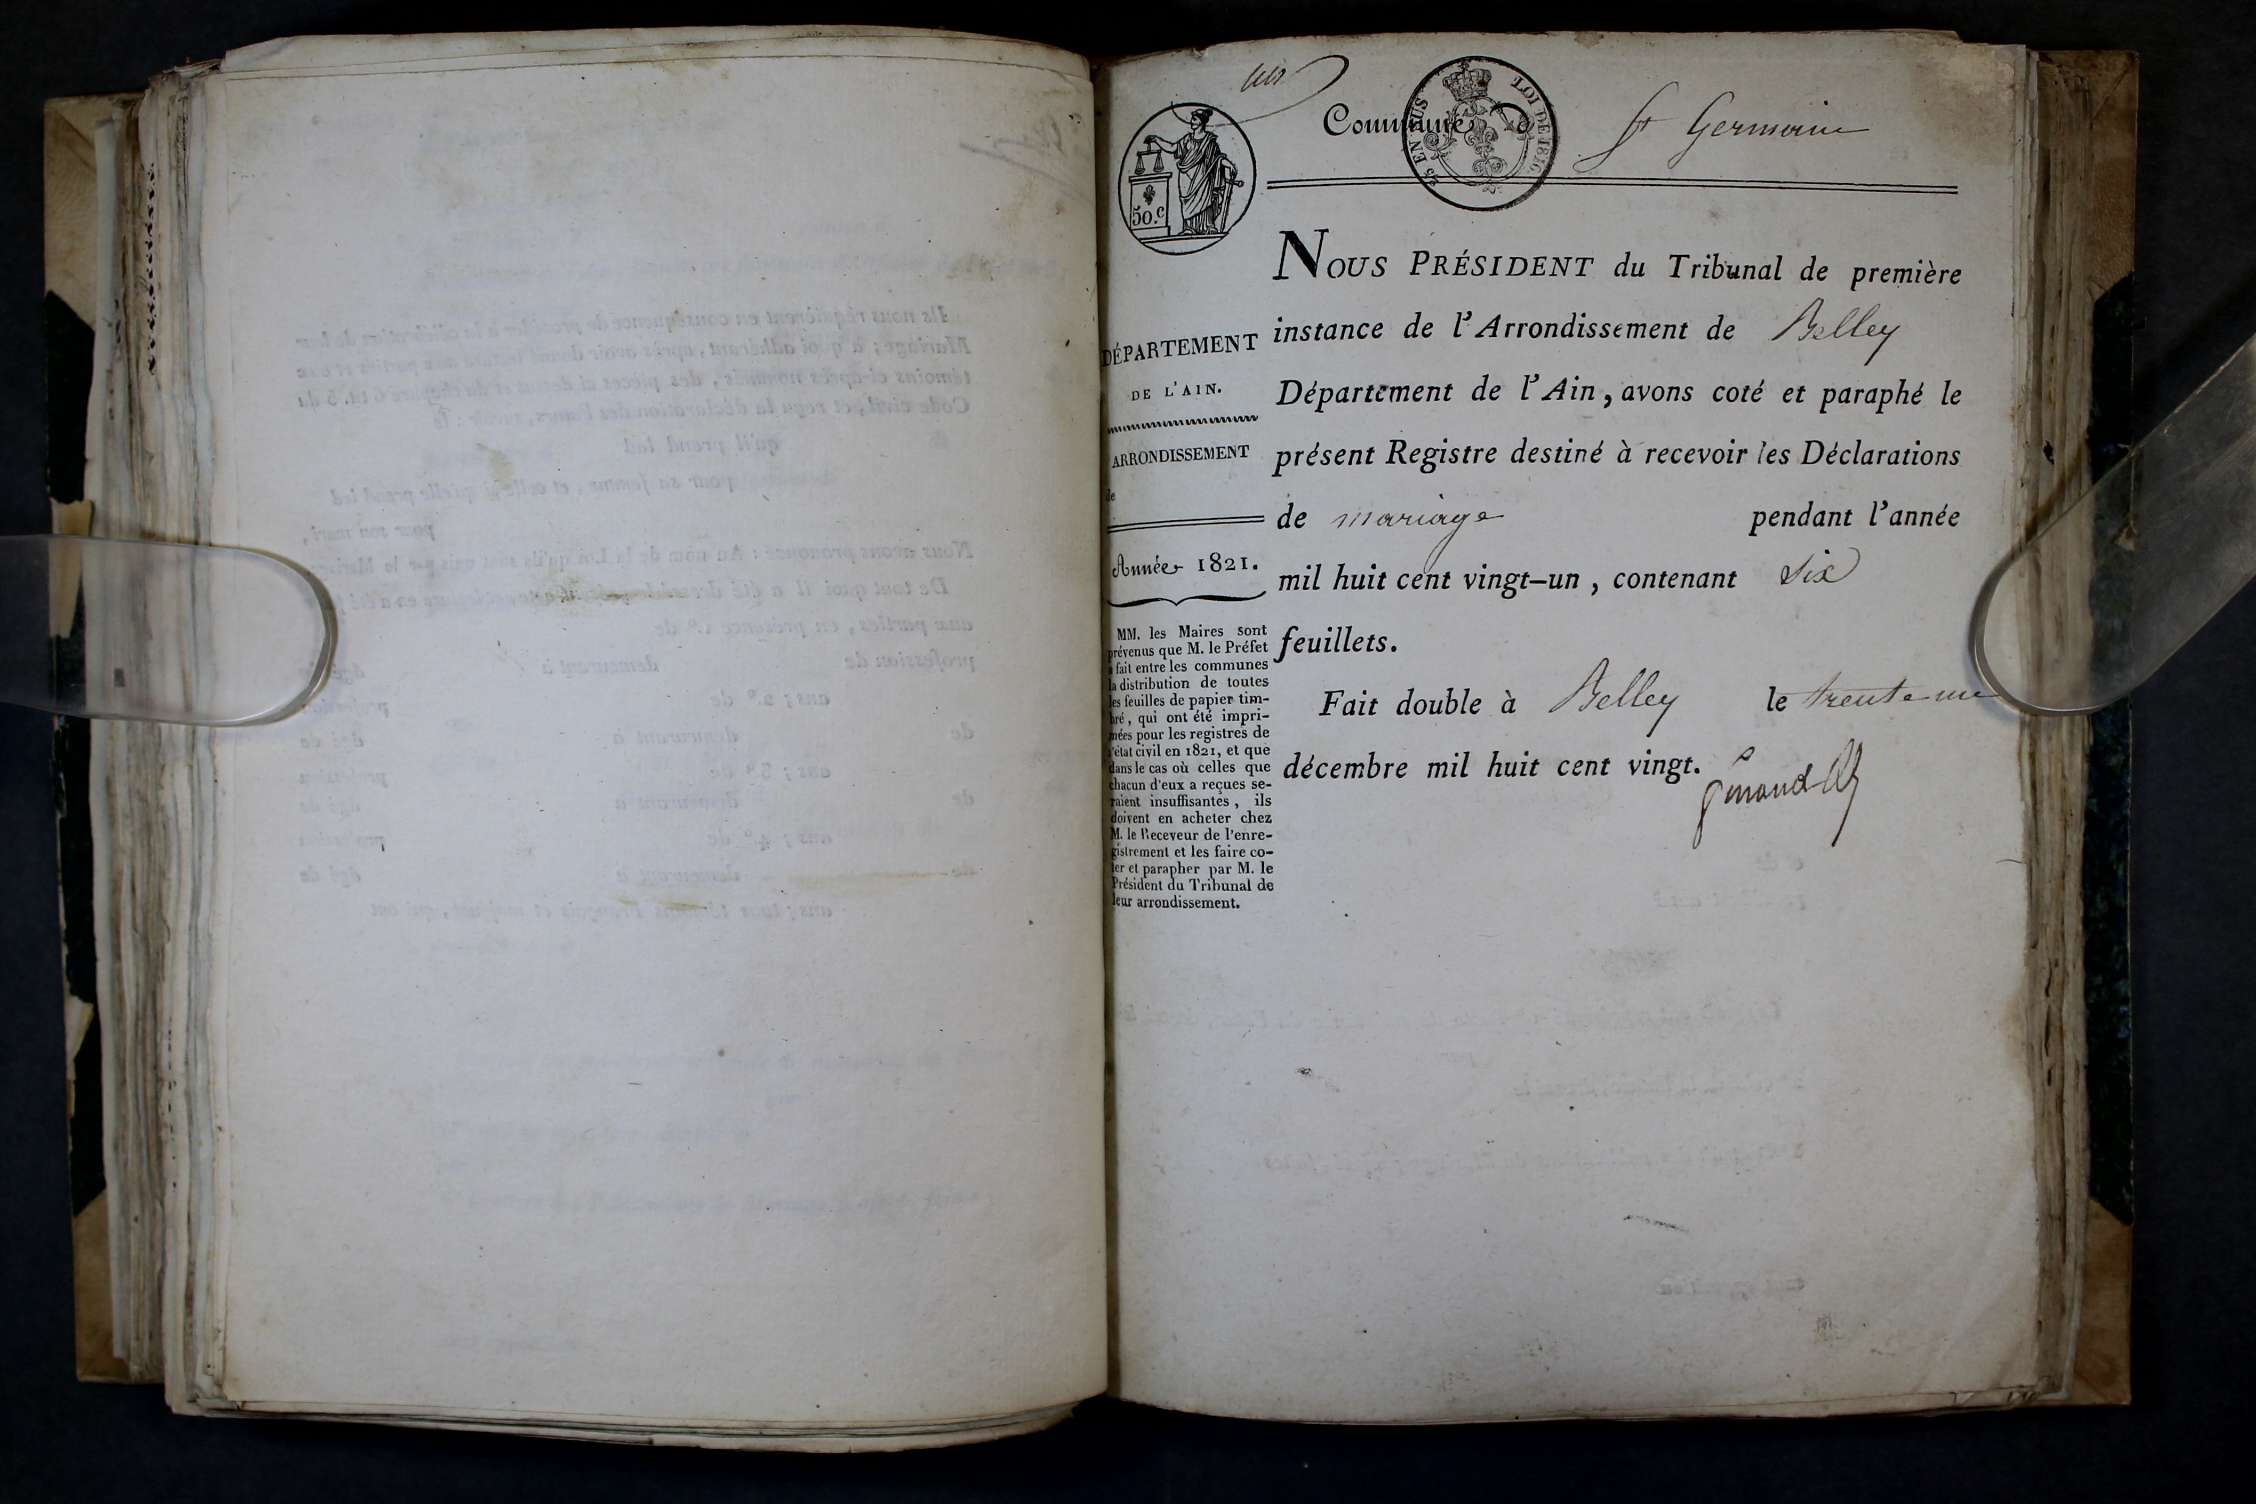 Commune de St Germain
25 EN SUS
LOI DE 1816.
50.c
DÉPARTEMENT
DE L'AIN.
ARRONDISSEMENT
de
Année 1821.
MM. les Maires sont
prévenus que M. le Préfet
a fait entre les communes
la distribution de toutes
les feuilles de papier tim-
bré, qui ont été impri-
mées pour les registres de
l'état civil en 1821, et que
dans le cas où celles que
chacun d'eux a reçues se-
raient insuffisantes, ils
doivent en acheter chez
M. le Receveur de l'enre-
gistrement et les faire co-
ter et parapher par M. le
Président du Tribunal de
leur arrondissement.
NOUS PRÉSIDENT du Tribunal de première
instance de l'Arrondissement de Belley
Département de l'Ain, avons coté et paraphé le
présent Registre destiné à recevoir les Déclarations
de mariage pendant l'année
mil huit cent vingt-un, contenant six
feuillets.
Fait double à Belley le trente un
décembre mil huit cent vingt.